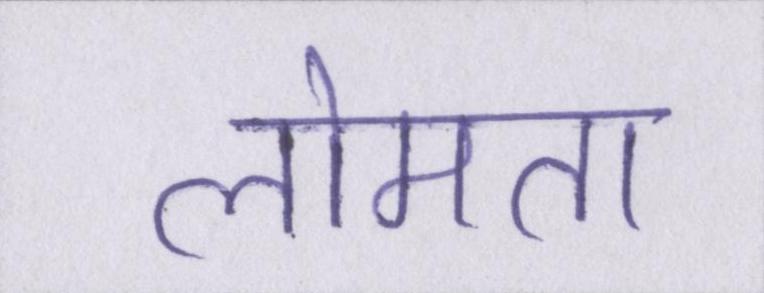 लोमता